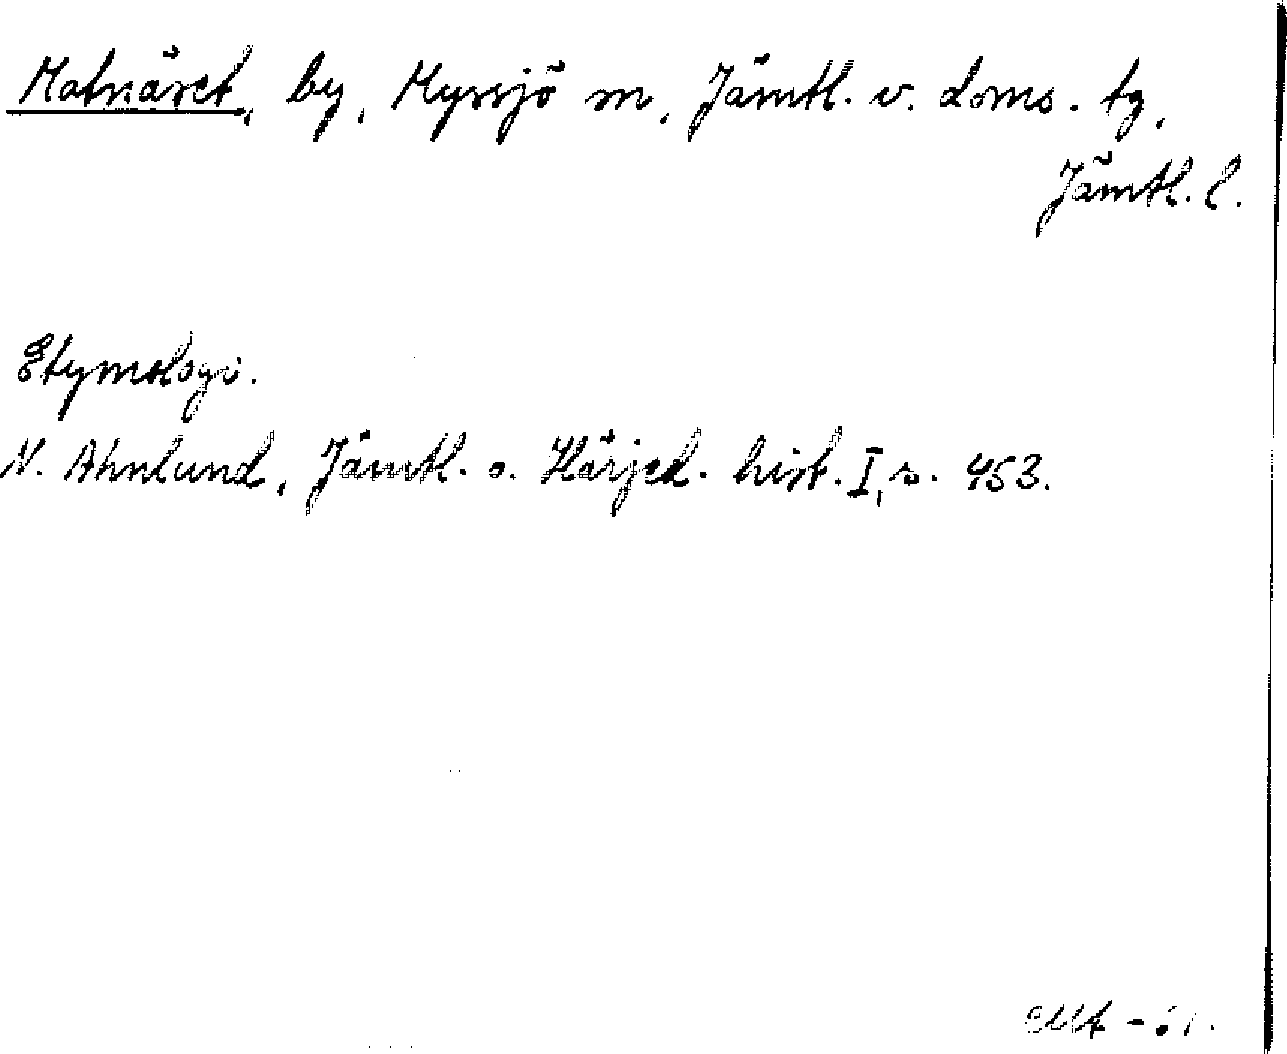 Matnäset, by, Myssjö sn, Jämtl. v. doms. tg,
Jämtl. l.
Etymologi.
N. Ahnlund, Jämtl. o. Härjed. hist. I, s. 453.